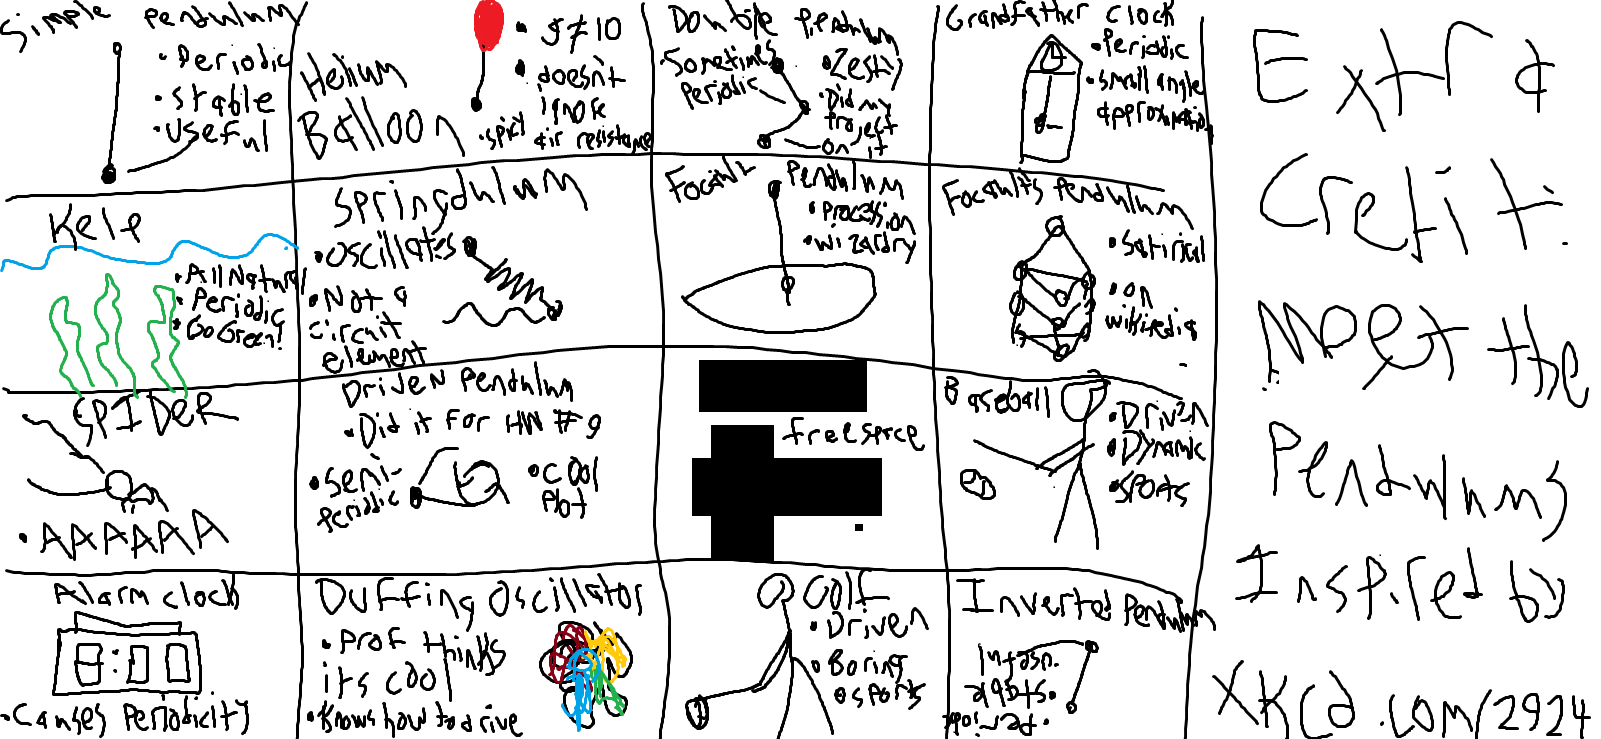 Simple Pendulum
• Periodic
• Stable
• Useful
Helium
Balloon
• g≠10
• doesn't
ignore
air resistance
• spicy
Double Pendulum
Sometimes
Periodic
• Zesty
• Did my
project
on it
Grandfather Clock
• Periodic
• small angle
approximation
Kelp
• All Natural
• Periodic
• Go Green!
Springdulum
• Oscillates
• Not a
circuit
element
Pendulum
• Wizardry
Pendulum
• Satirical
• on
wikipedia
SPIDER
• AAAAAA
Driven Pendulum
• Did it for HW #9
• Semi-
Periodic
• Cool
Plot
free space
Baseball
• Driven
• Dynamic
• Sports
Alarm clock
8:00
• Causes Periodicity
Duffing Oscillator
• Prof thinks
its cool
• Knows how to drive
Golf
• Driven
• Boring
• sports
Inverted Pendulum
Extra
Credit:
Meet the
Pendulums
Inspired by
xkcd.com/2924